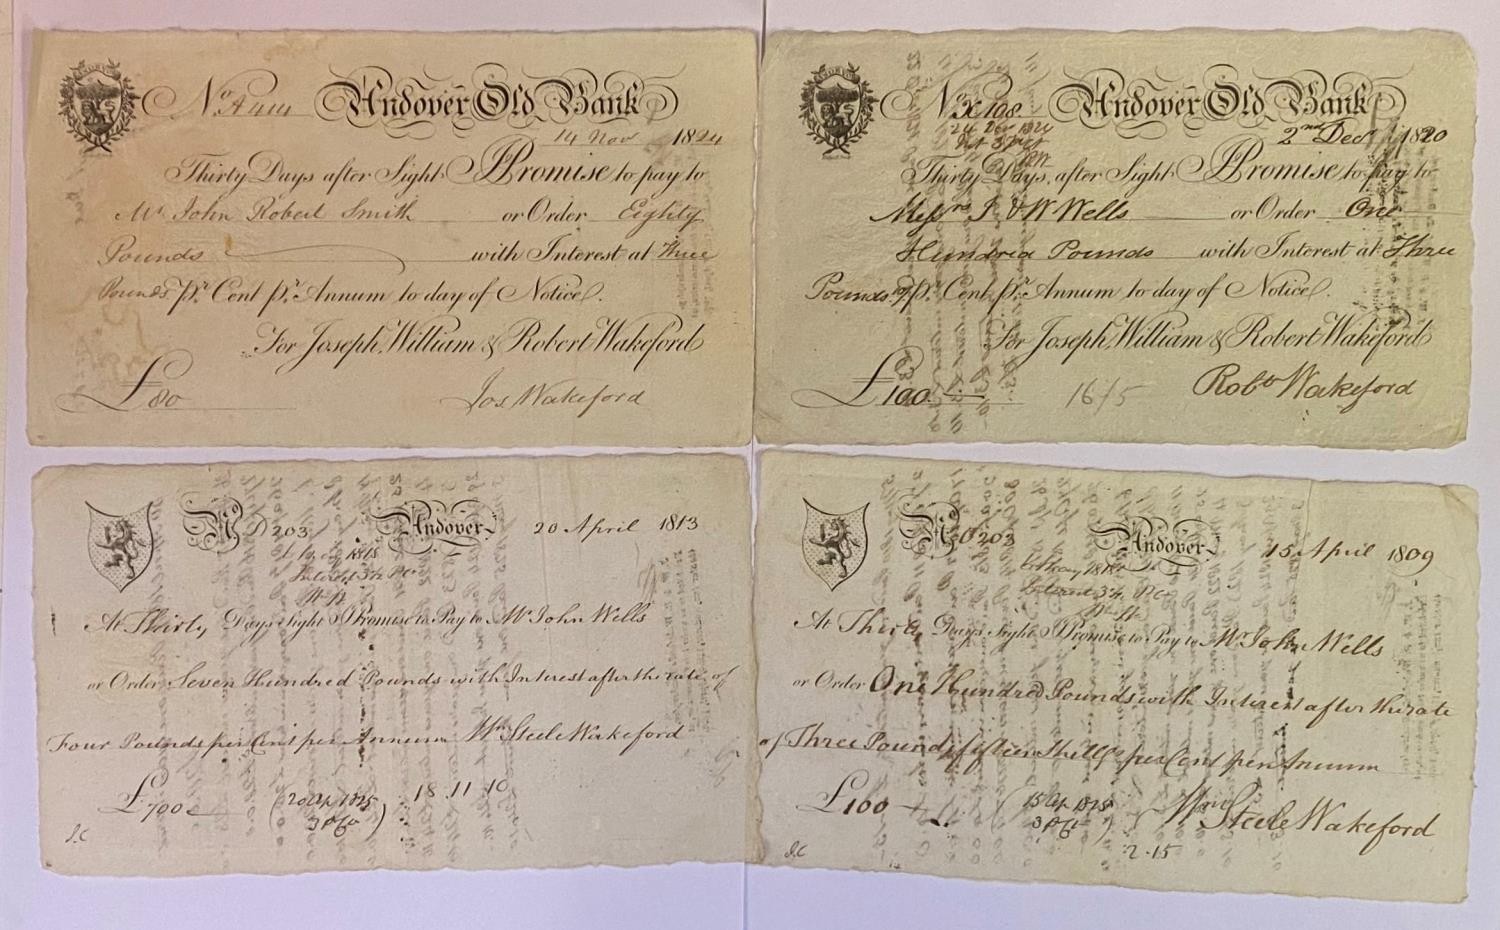 No. A414 Andover Old Bank
14 Nov 1824
Thirty Days after Sight I Promise to pay to
Mr. John Robert Smith or Order Eighty
Pounds with Interest at Three
Pounds pr. Cent pr. Annum to day of Notice.
For Joseph, William & Robert Wakeford
£80 Jos Wakeford
No. X198 Andover Old Bank
24 Dec 1824
2nd Decr 1820
Int 3 pCt
Thirty Days after Sight I Promise to pay to
Messrs. J & W Wells or Order One
Hundred Pounds with Interest at Three
Pounds pr. Cent pr. Annum to day of Notice.
For Joseph, William & Robert Wakeford
£100 16/5 Robt Wakeford
No D203 Andover 20 April 1813
1815
Interest 3½ P Ct
At Thirty Days Sight I Promise to Pay to Mr John Wells
or Order Seven Hundred Pounds with Interest after the rate of
Four Pounds per Cent per Annum Wm Steele Wakeford
£700 (20 Ap 1825 18 . 11 . 10
3 P Ct)
J.C
No 203 Andover 15 April 1809
Interest 3¼ P Ct
At Thirty Days Sight I Promise to Pay to Mr John Wells
or Order One Hundred Pounds with Interest after the rate
of Three Pounds fifteen Shills per Cent per Annum
£100 (15 Ap 1825 Wm Steele Wakeford
3 P Ct) 2 . 15
J.C